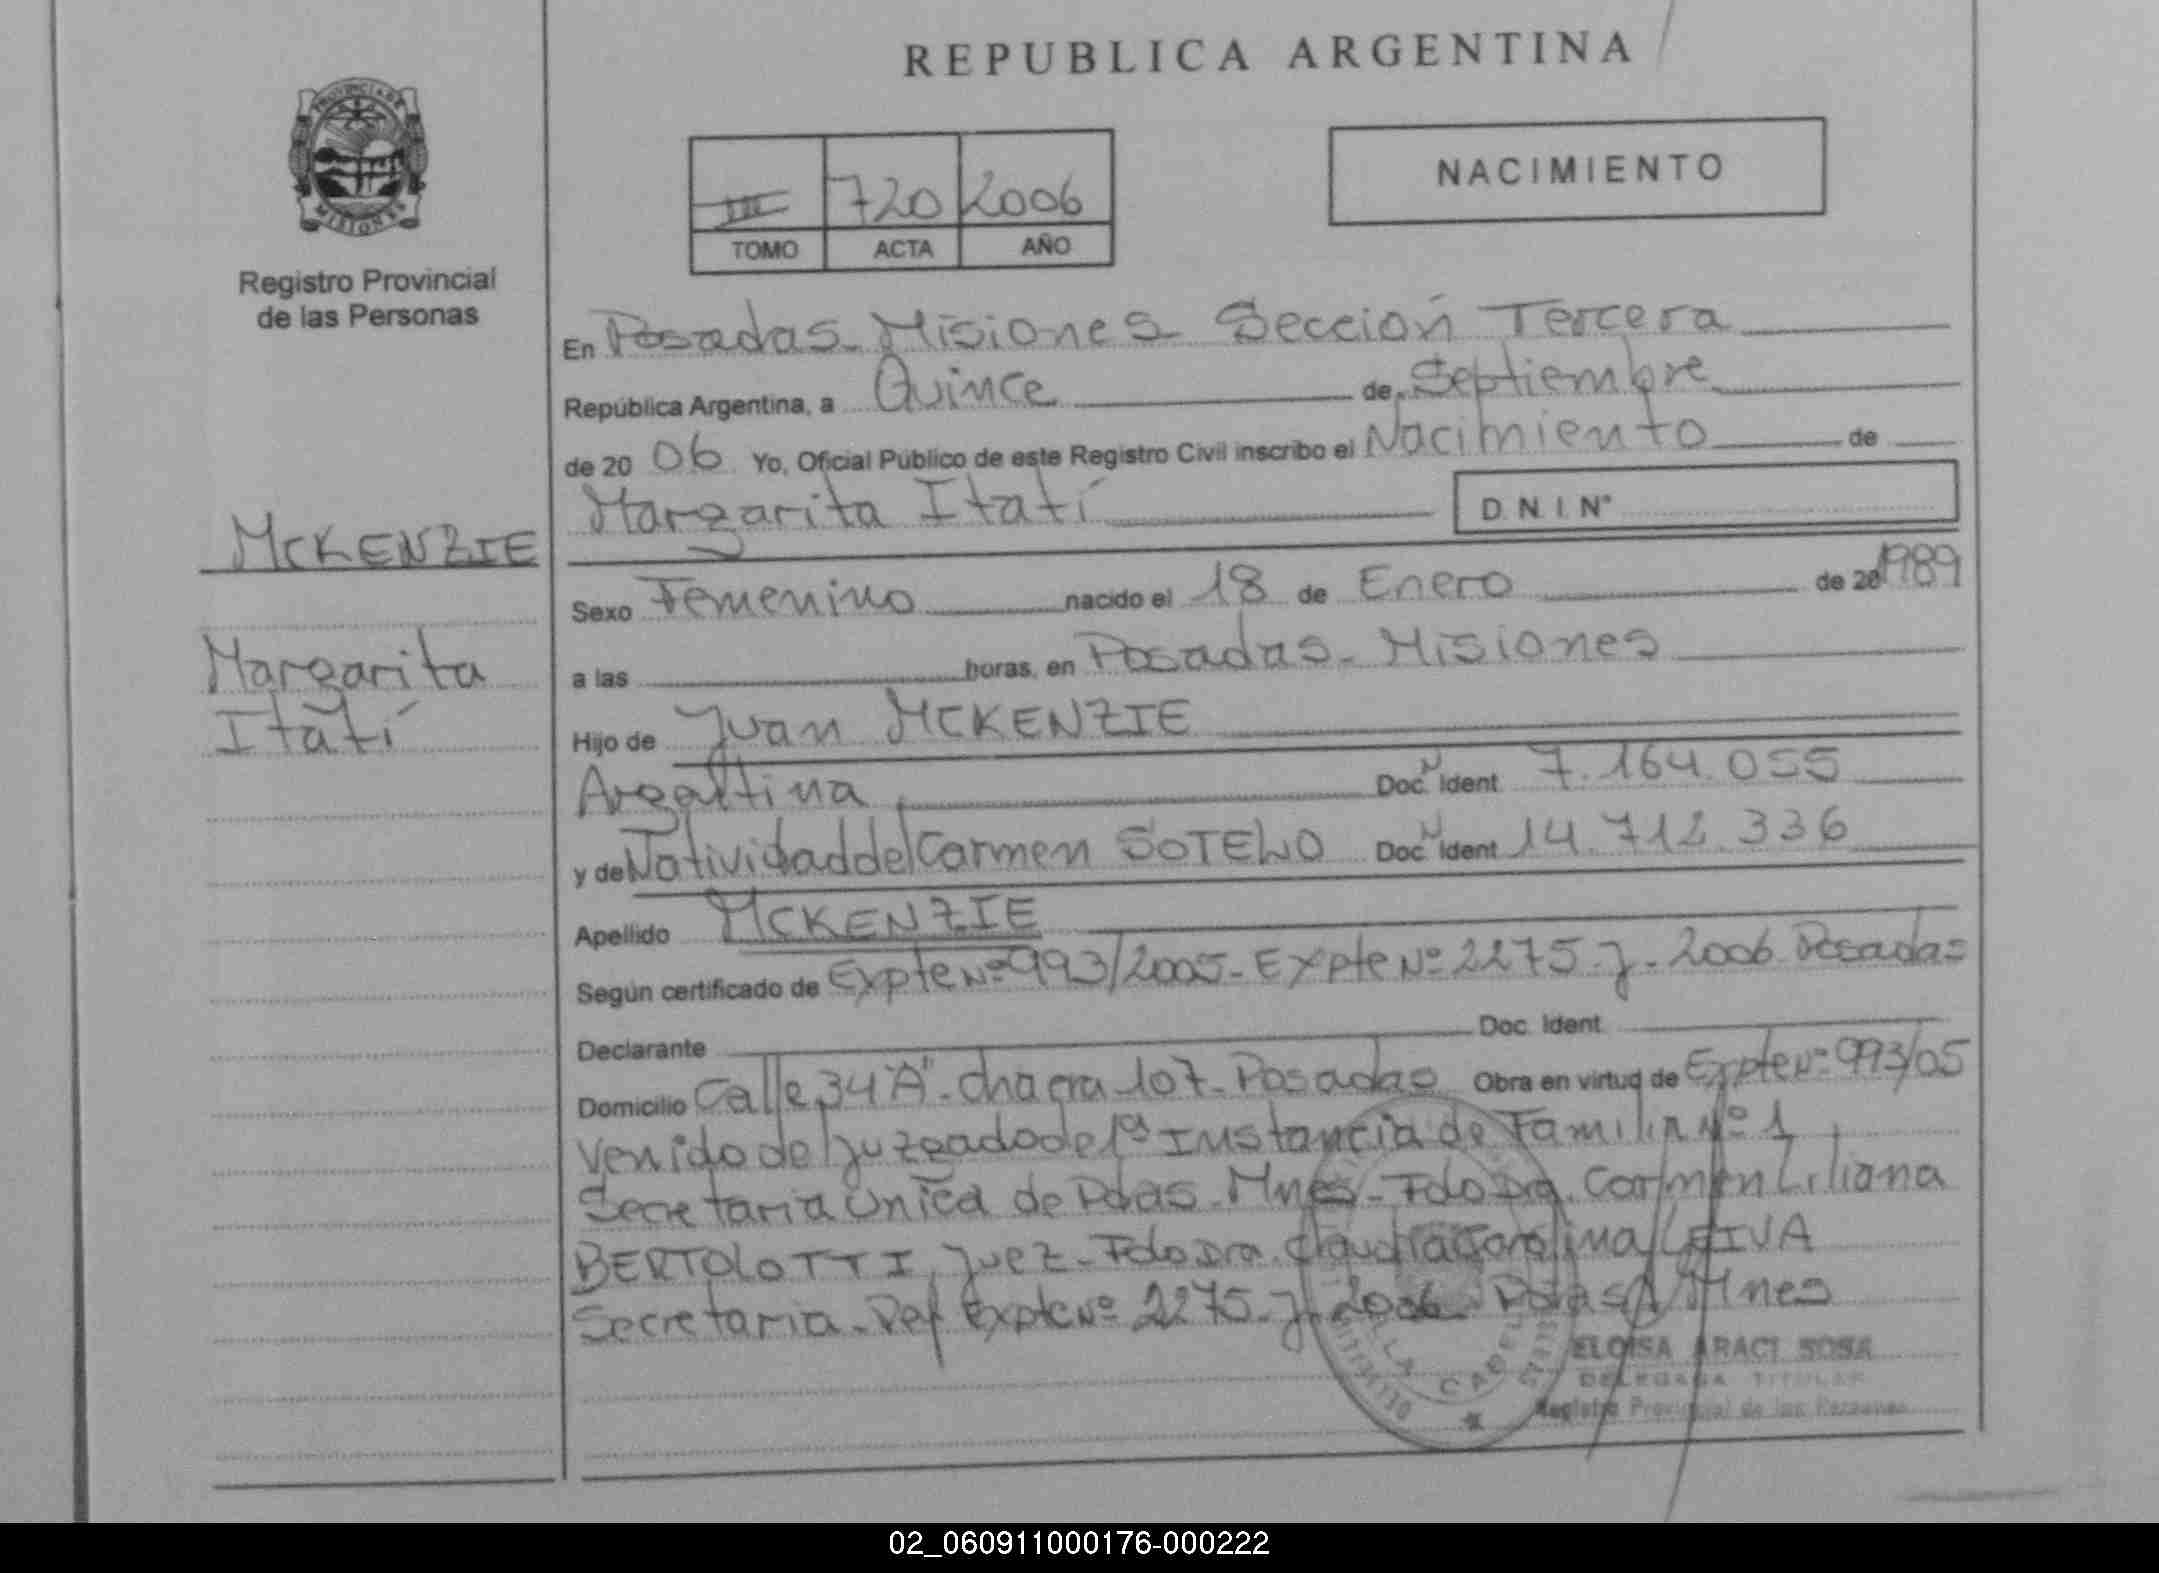 REPUBLICA ARGENTINA
PROVINCIA DE
MISIONES
Registro Provincial
de las Personas
III 720 2006
TOMO ACTA AÑO
NACIMIENTO
En Posadas - Misiones Sección Tercera
República Argentina, a Quince de Septiembre
de 20 06 Yo, Oficial Público de este Registro Civil inscribo el Nacimiento de
Margarita Itatí D.N.I.N°
MCKENZIE
Margarita
Itatí
Sexo Femenino nacido el 18 de Enero de 20 1989
a las horas, en Posadas - Misiones
Hijo de Juan MCKENZIE
Argentina Doc. Ident 7.164.055
y de Natividad del Carmen SOTELO Doc. Ident 14.712.336
Apellido MCKENZIE
Según certificado de Expte Nº 993/2005 - Expte Nº 2275 - J - 2006 Posadas
Declarante Doc. Ident
Domicilio Calle 34 "A" - chacra 107 - Posadas Obra en virtud de Expte Nº 993/05
Venido del Juzgado de 1ª Instancia de Familia Nº 1
Secretaria Unica de Pdas - Mnes - Fdo Dra. Carmen Liliana
BERTOLOTTI Juez - Fdo Dra. Claudia Carolina LEIVA
Secretaria - Ref Expte Nº 2275 - J - 2006 Pdas Mnes
ELOISA ARACI SOSA
DELEGADA TITULAR
Registro Provincial de las Personas
02_060911000176-000222